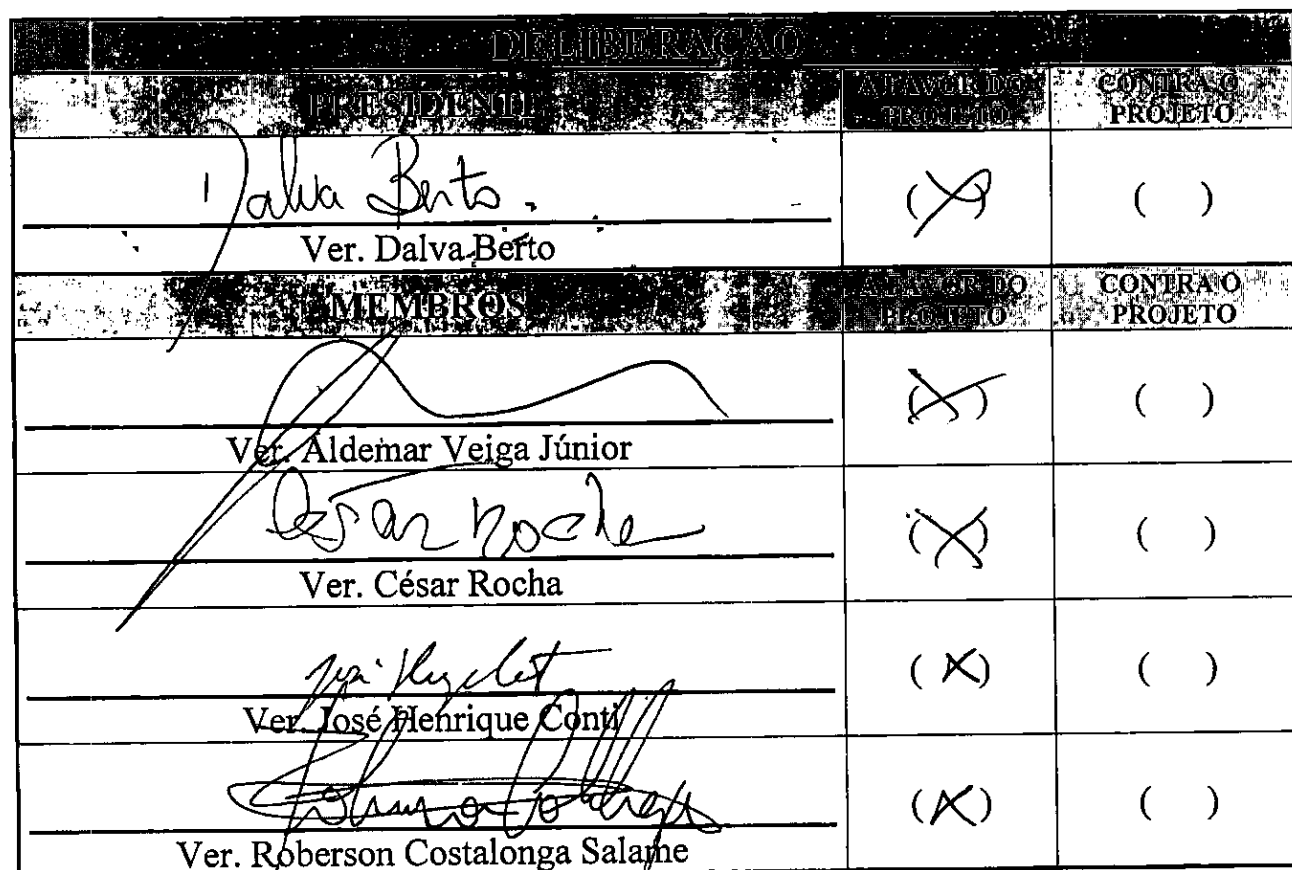 DELIBERAÇÃO
PRESIDENTE
A FAVOR DO PROJETO
CONTRA O PROJETO
Dalva Berto.
(X)
( )
Ver. Dalva Berto
MEMBROS
A FAVOR DO PROJETO
CONTRA O PROJETO
(X)
( )
Ver. Aldemar Veiga Júnior
César Rocha
(X)
( )
Ver. César Rocha
(X)
( )
Ver. José Henrique Conti
(X)
( )
Ver. Roberson Costalonga Salame